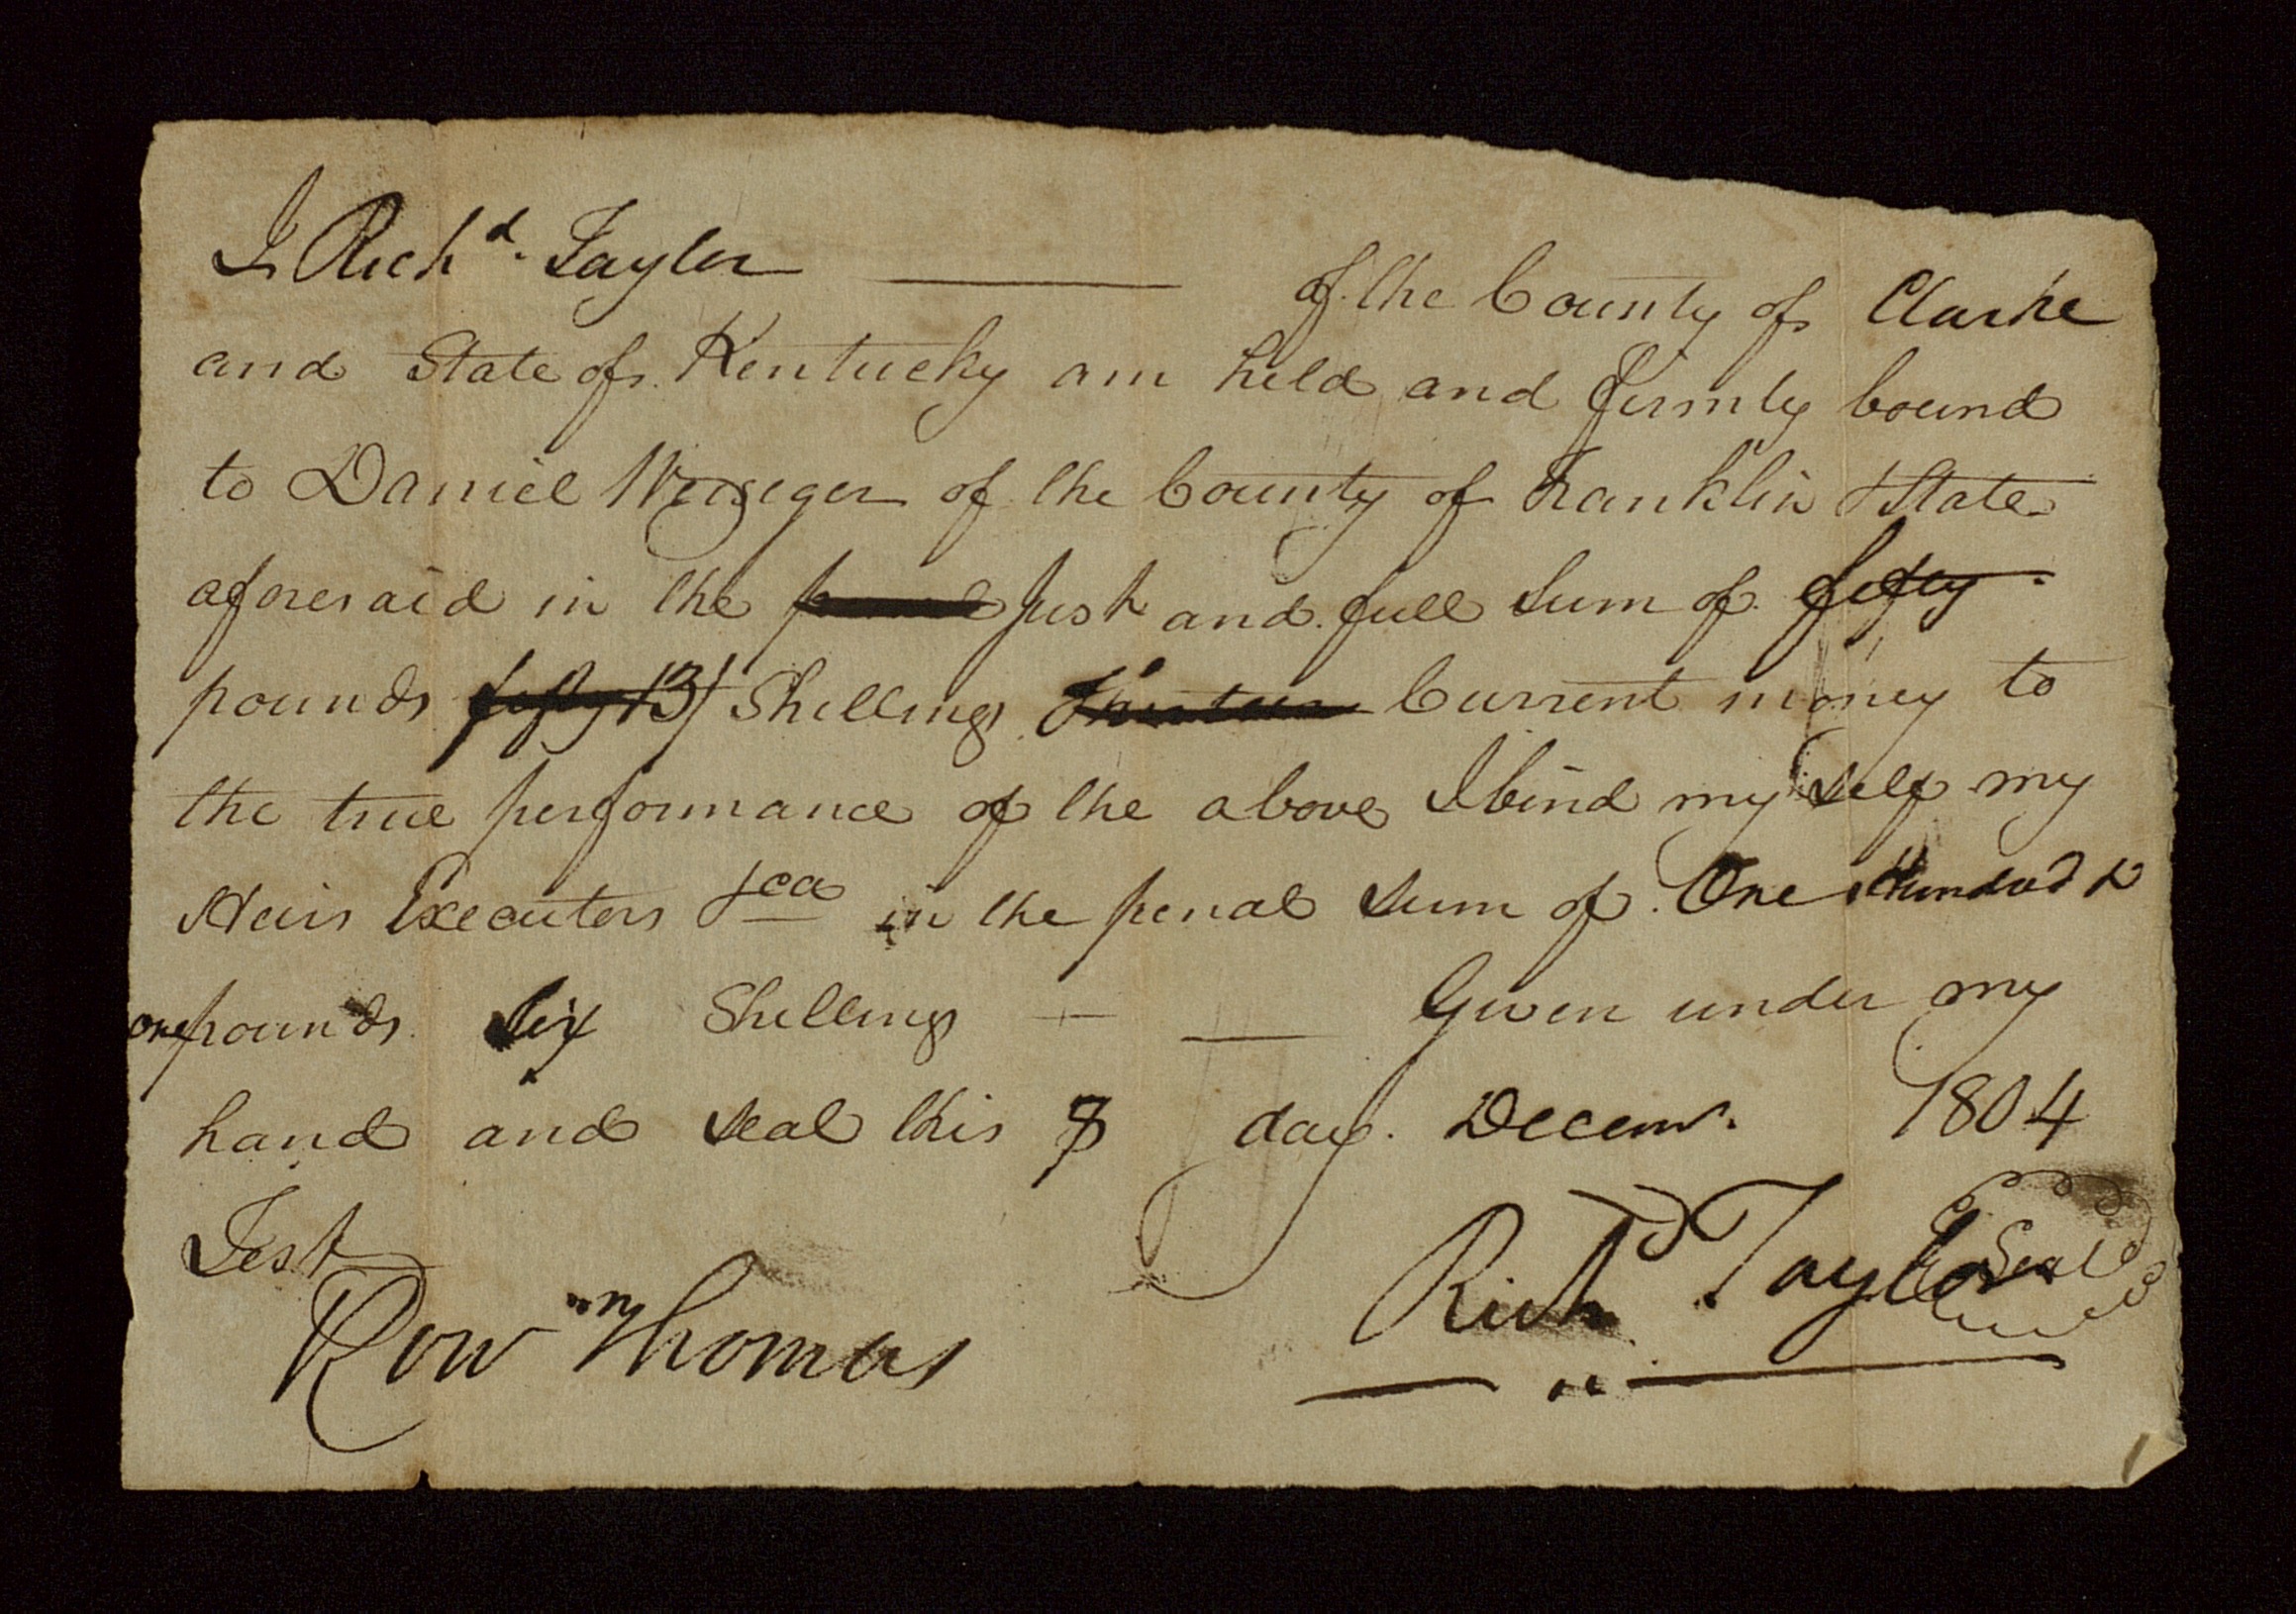 I Richd. Taylor of the County of Clarke
and State of Kentucky am held and firmly bound
to Daniel Weisiger of the County of Franklin & State
aforesaid in the penal Just and full Sum of fifty
pounds fifty 13/ Shillings Thirteen Current money to
the true performance of the above I bind my self my
Heirs Executors &ca in the penal Sum of One Hundred &
one pounds Six Shillings Given under my
hand and seal this 8 day Decemr. 1804
Test
Row Thomas
Richd Taylor Seal